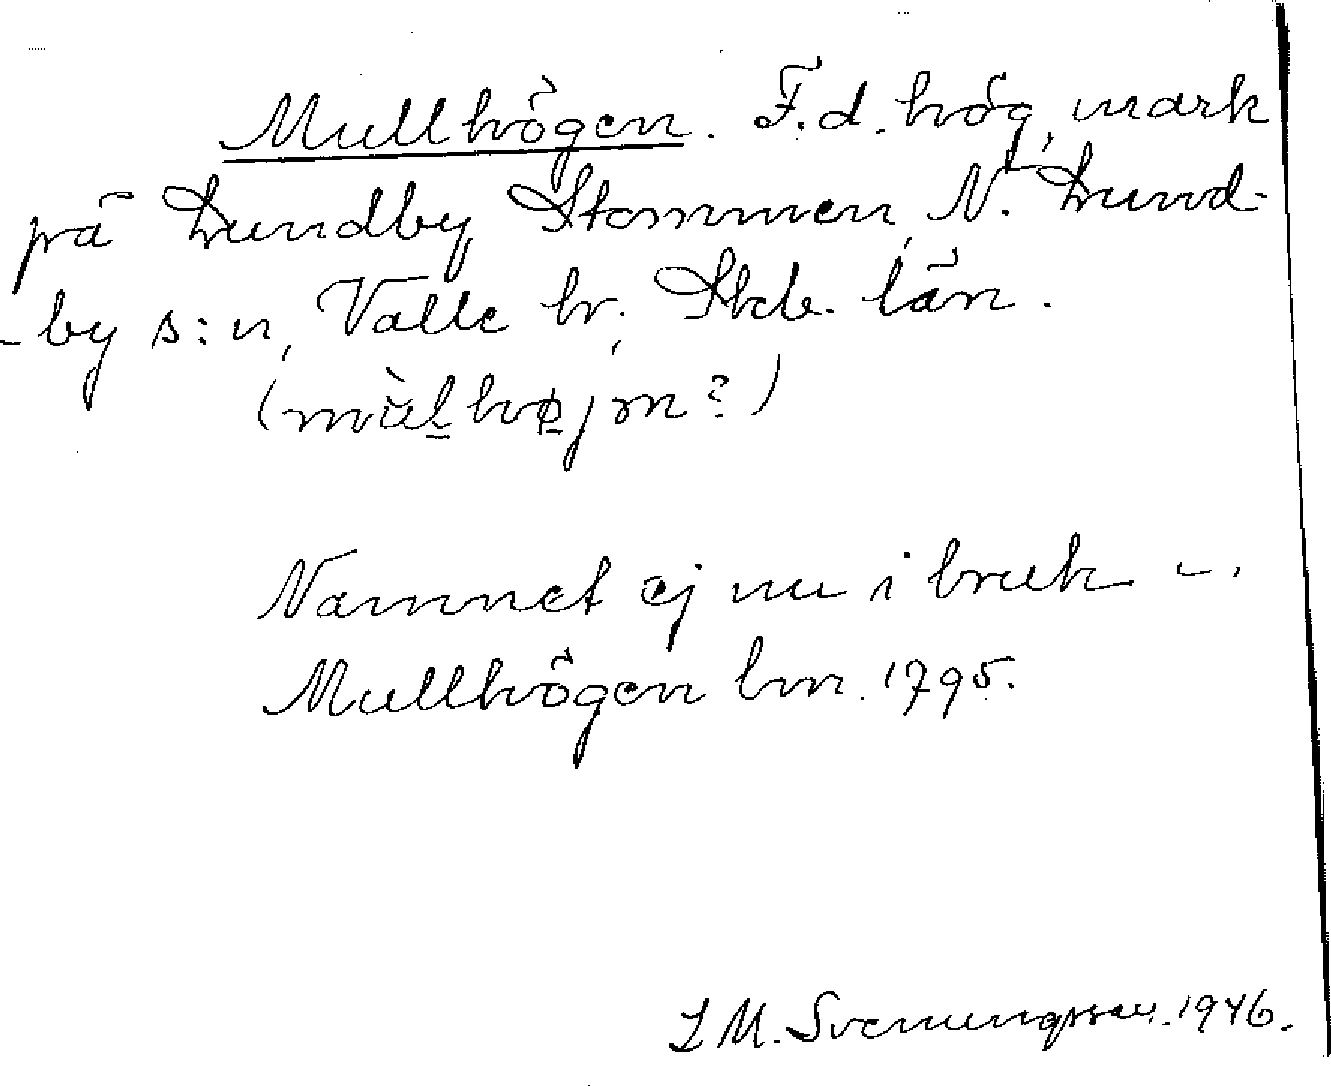 Mullhögen. F.d. hög, mark
på Lundby Stommen, N. Lund-
-by s:n, Valle hr, Skb. län.
(mùl højn?)
Namnet ej nu i bruk
Mullhögen lm. 1795.
Svenungsson. 1946.